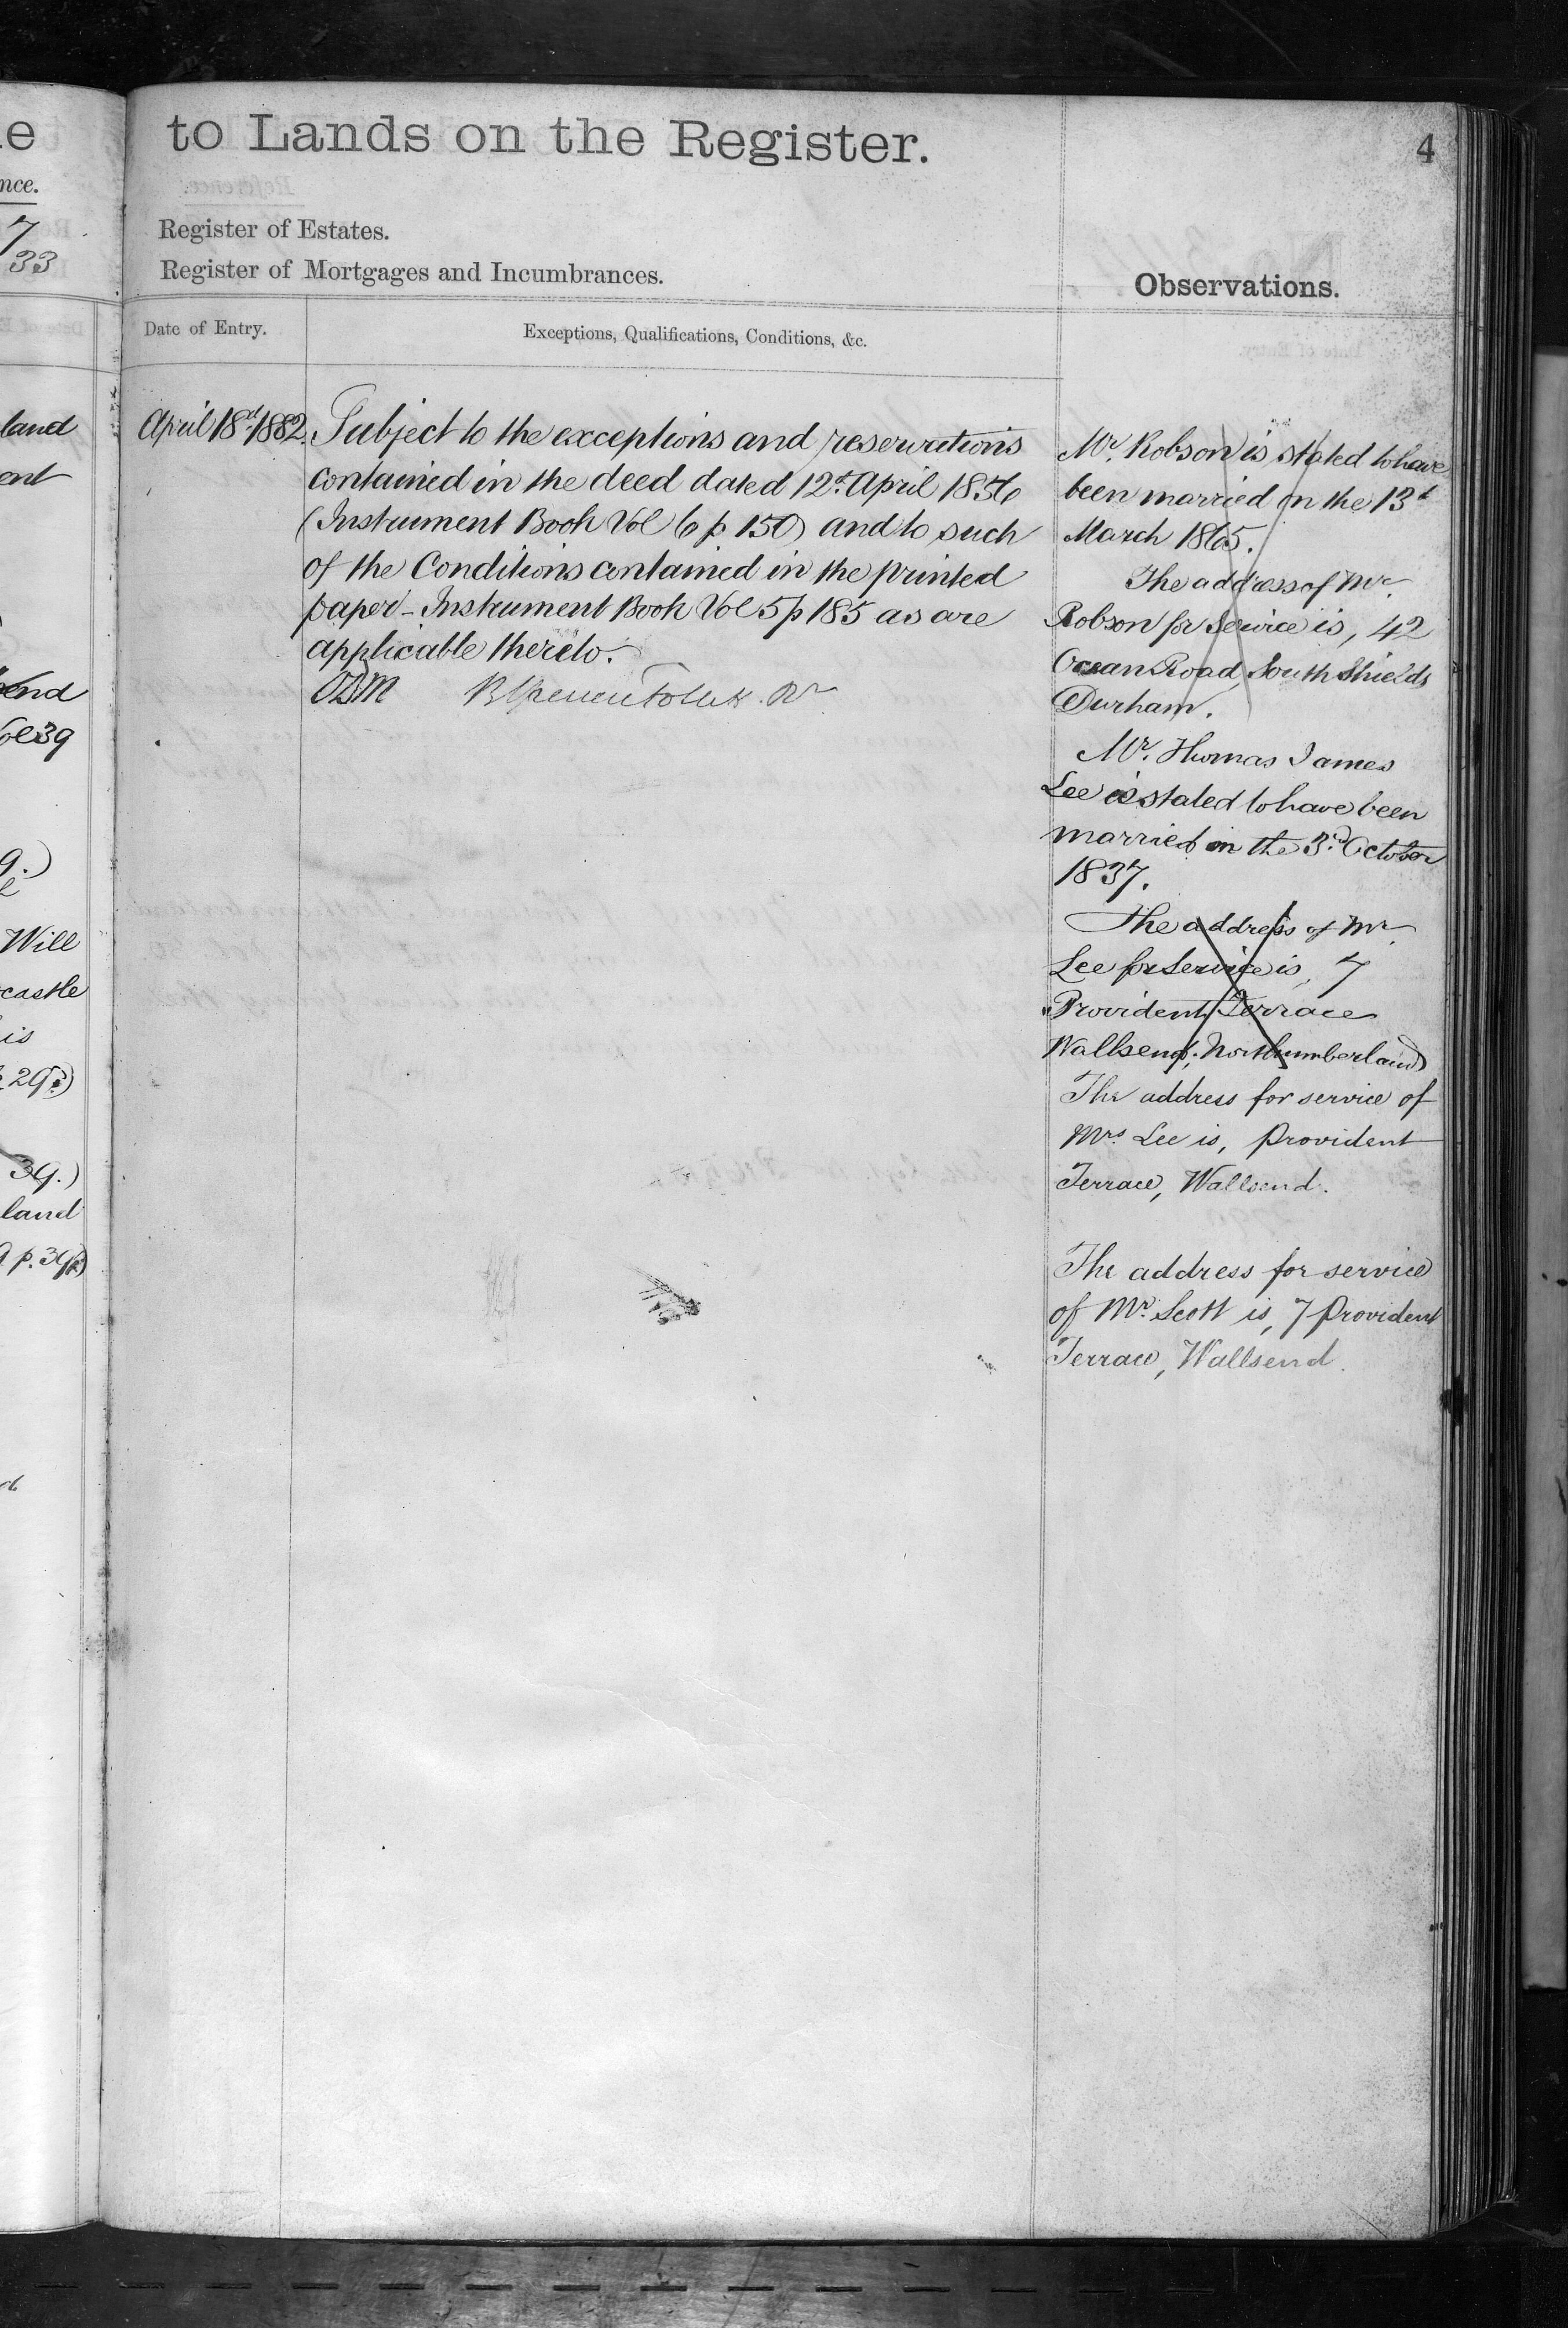 e
to Lands on the Register.
4
nce.
7
33
Register of Estates.
Register of Mortgages and Incumbrances.
Observations.
Date of Entry.
Exceptions, Qualifications, Conditions, &c.
land
ent
end
Vol 39
9.)
Will
castle
is
29.)
39.)
land
p. 39
April 18th 1882.
Subject to the exceptions and reservations
contained in the deed dated 12th April 1856
(Instrument Book Vol 6 p 150) and to such
of the Conditions contained in the printed
paper - Instrument Book Vol 5 p 185 as are
applicable thereto.
Mr. Robson is stated to have
been married on the 13th
March 1865.
The address of Mr.
Robson for Service is, 42
Ocean Road, South Shields
Durham.
Mr. Thomas James
Lee is stated to have been
married on the 3rd October
1837.
The address of Mr.
Lee for Service is, 7
Provident Terrace
Wallsend, Northumberland
The address for service of
Mrs Lee is, Provident
Terrace, Wallsend.
The address for service
of Mr. Scott is, 7 Provident
Terrace, Wallsend.